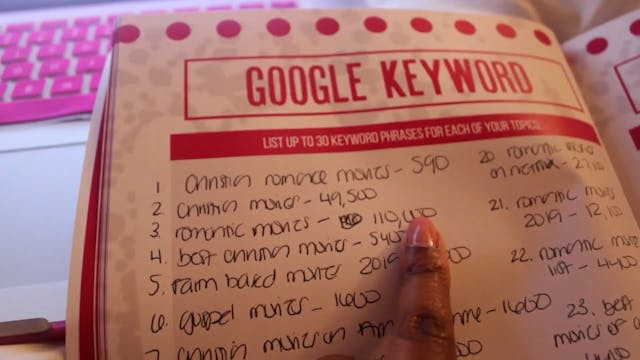 GOOGLE KEYWORD
LIST UP TO 30 KEYWORD PHRASES FOR EACH OF YOUR TOPICS
1 Christian romance movies - 590
2. Christian movies - 49,500
3. romantic movies - 110,000
4. best christian movies -
5. faith based movies 2019
6. gospel movies - 1600
7 Christian movies on - 1600
20 romantic movies
on netflix -
21. romantic movies
2019 - 12,100
22. romantic movie
list - 4400
23. best
movies of